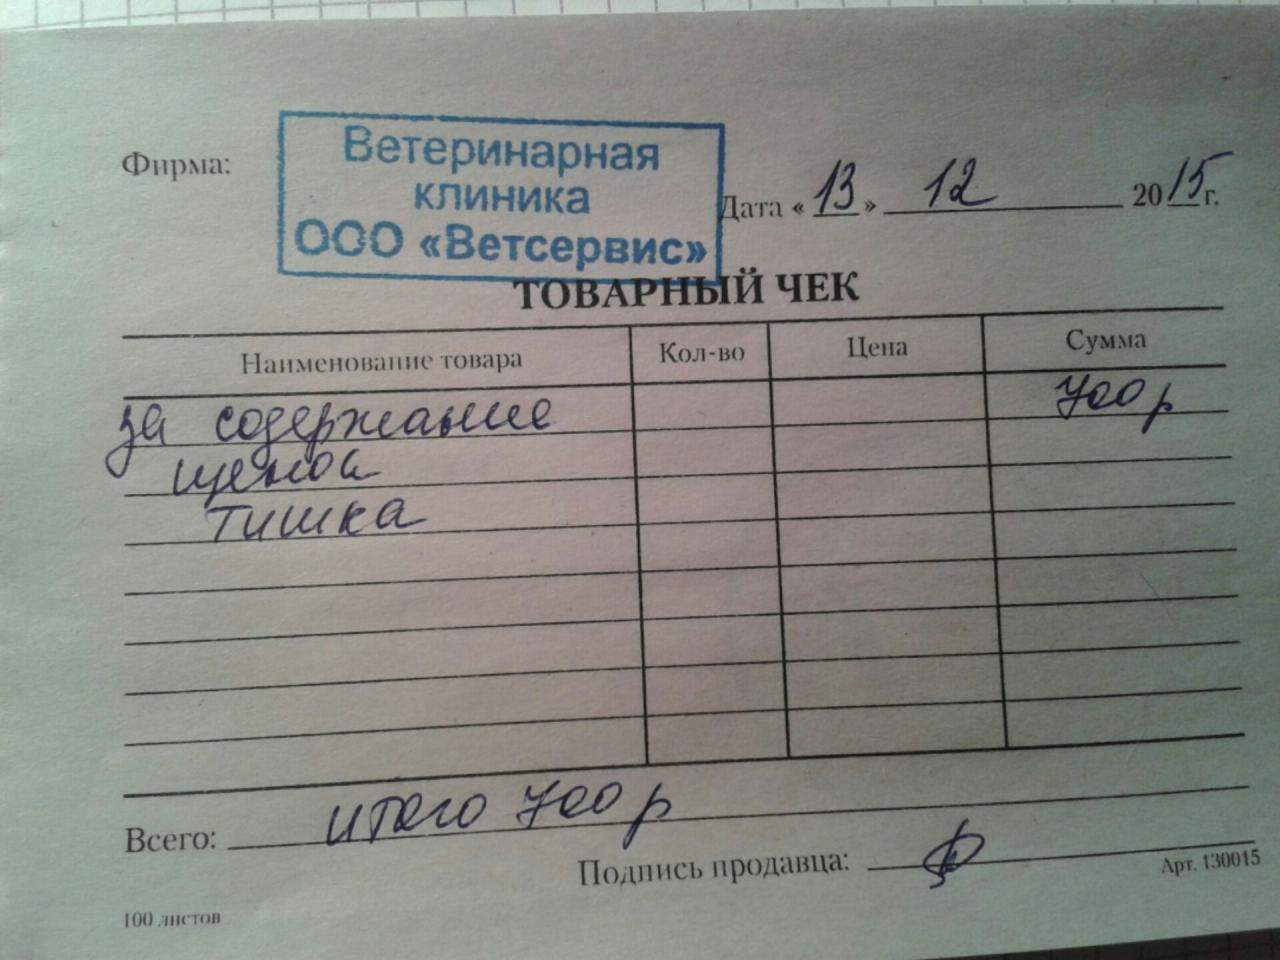 Фирма:
Ветеринарная
клиника
ООО «Ветсервис»
Дата « 13 » 12 2015 г.
ТОВАРНЫЙ ЧЕК
Наименование товара Кол-во Цена Сумма
за содержание 700 р
щенка
тишка
Всего: итого 700 р
Подпись продавца:
Арт. 130015
100 листов